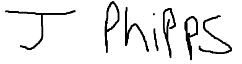 J Phipps